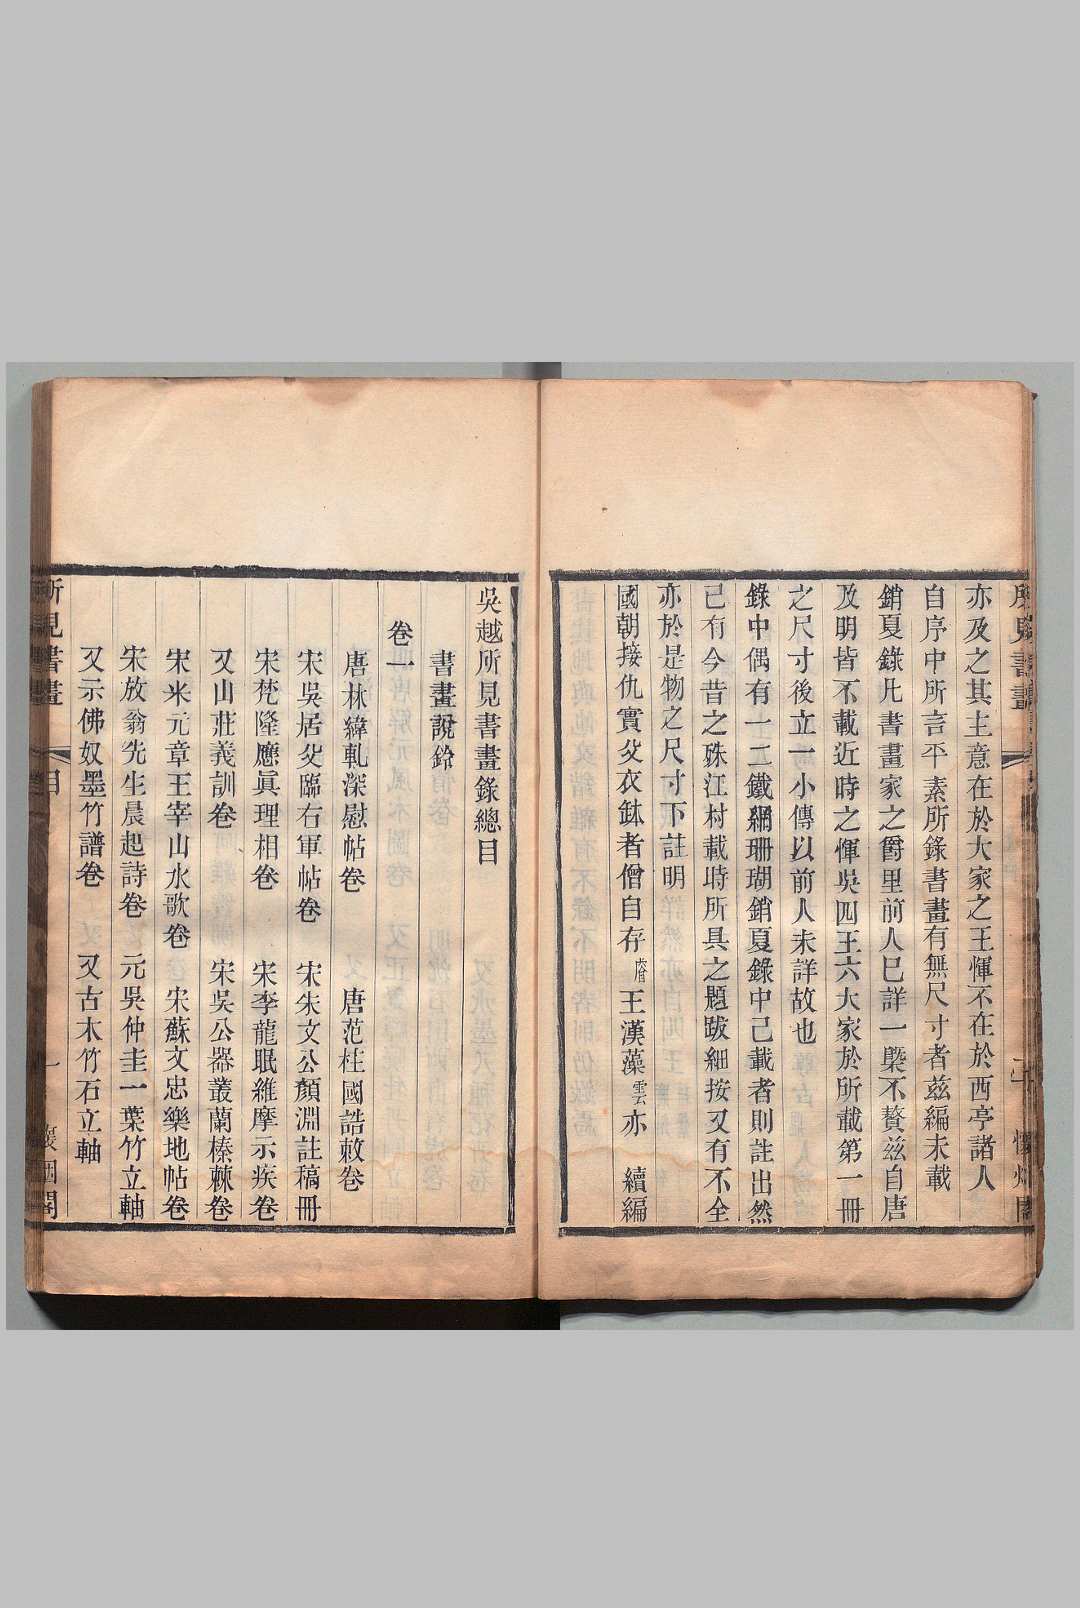 亦及之其主意在於大家之王惲不在於西亭諸人
自序中所言平素所錄書畫有無尺寸者茲編未載
銷夏錄凡書畫家之爵里前人已詳一槩不贅茲自唐
及明皆不載近時之惲吳四王六大家於所載第一冊
之尺寸後立一小傳以前人未詳故也
錄中偶有一二鐵網珊瑚銷夏錄中已載者則註出然
已有今昔之殊江村載時所具之題跋細按又有不全
亦於是物之尺寸下註明
國朝接仇實父衣鉢者僧自存睿王漢藻雲亦 續編
吳越所見書畫錄總目
書畫說鈴
卷一
唐林緯乹深慰帖卷 唐范桂國誥敕卷
宋吳居父臨右軍帖卷 宋朱文公顏淵註稿冊
宋梵隆應眞理相卷 宋李龍眠維摩示疾卷
又山莊義訓卷 宋吳公器叢蘭榛棘卷
宋米元章王宰山水歌卷 宋蘇文忠樂地帖卷
宋放翁先生晨起詩卷 元吳仲圭一葉竹立軸
又示佛奴墨竹譜卷 又古木竹石立軸
所見書畫 目 一